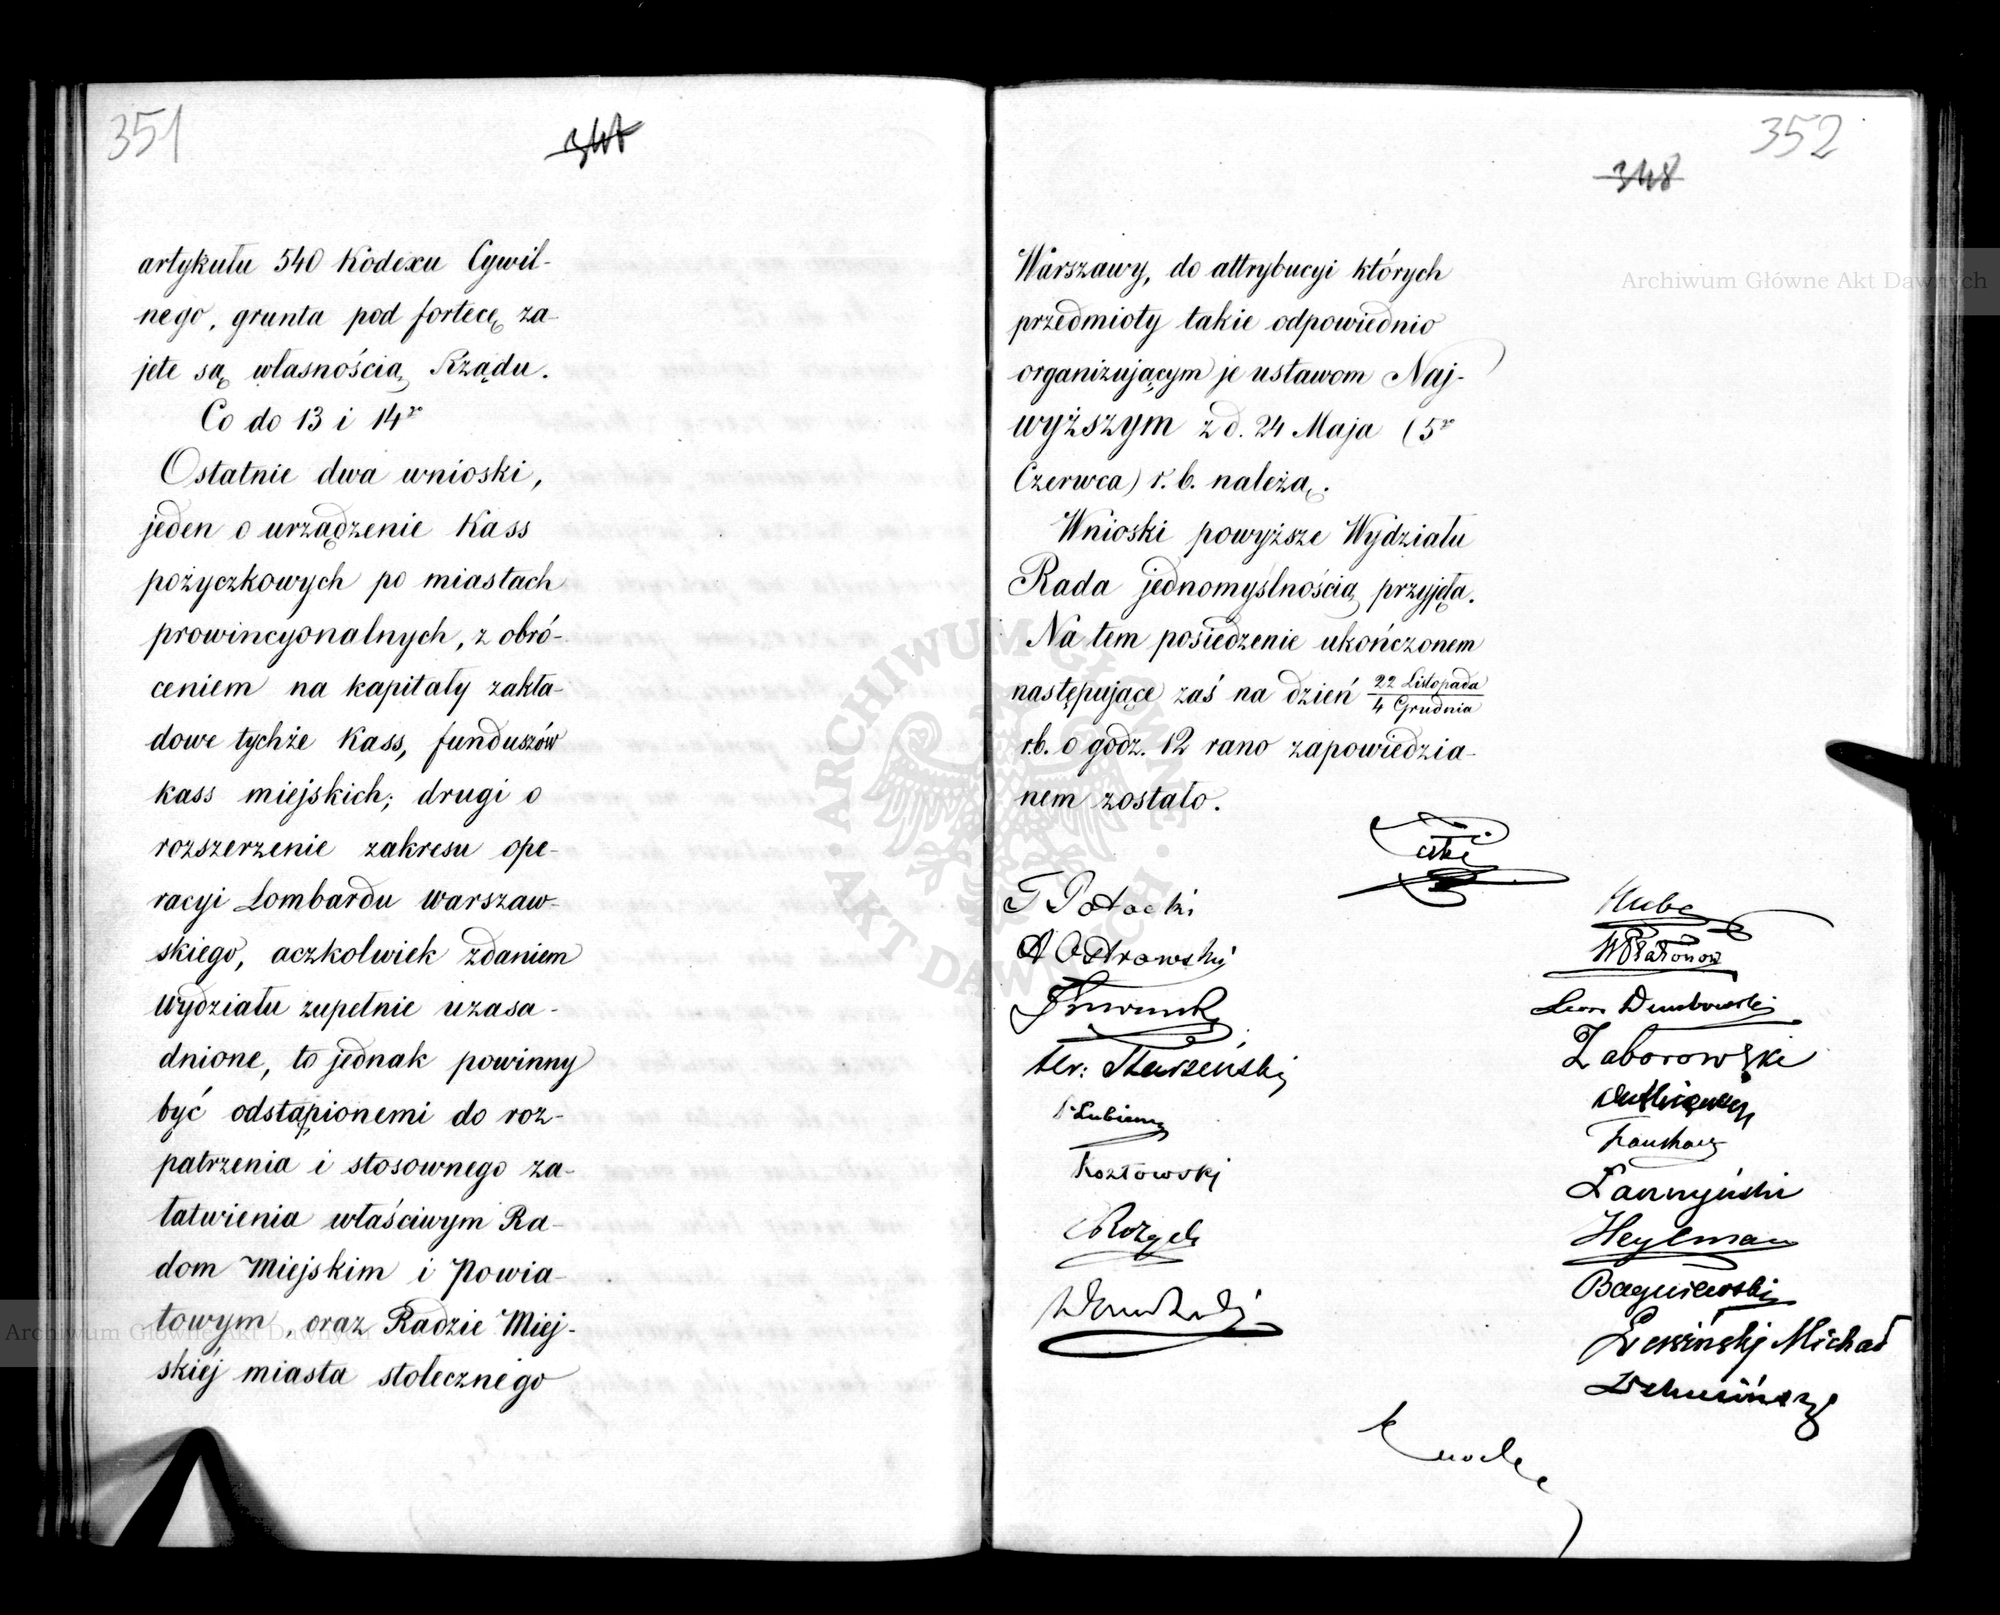 351
347
artykułu 540 Kodexu Cywil-
nego, grunta pod fortecę za-
jęte są własnością Rządu.
Co do 13 i 14º
Ostatnie dwa wnioski,
jeden o urządzenie Kass
pożyczkowych po miastach
prowincyonalnych, z obró-
ceniem na kapitały zakła-
dowe tychże Kass, funduszów
kass miejskich; drugi o
rozszerzenie zakresu ope-
racyi Lombardu warszaw-
skiego, aczkolwiek zdaniem
wydziału zupełnie uzasa-
dnione, to jednak powinny
być odstąpionemi do roz-
patrzenia i stosownego za-
łatwienia właściwym Ra-
dom Miejskim i Powia-
towym, oraz Radzie Miej-
skiéj miasta stołecznego
352
348
Warszawy, do attrybucyi których
przedmioty takie odpowiednio
organizującym je ustawom Naj-
wyższym z d. 24 Maja (5º
Czerwca) r. b. należą.
Wnioski powyższe Wydziału
Rada jednomyślnością przyjęła.
Na tem posiedzenie ukończonem
następujące zaś na dzień 22 Listopada
4 Grudnia
r.b. o godz. 12 rano zapowiedzia-
nem zostało.
T Potocki
A Ostrowski
Łubieny
Kozłowski
Hube
Platonow
Leon Dembowski
Zaborowski
Heylman
Bagniewski
Michał
Archiwum Główne Akt Dawnych
Archiwum Główne Akt Dawnych
ARCHIWUM GŁÓWNE AKT DAWNYCH